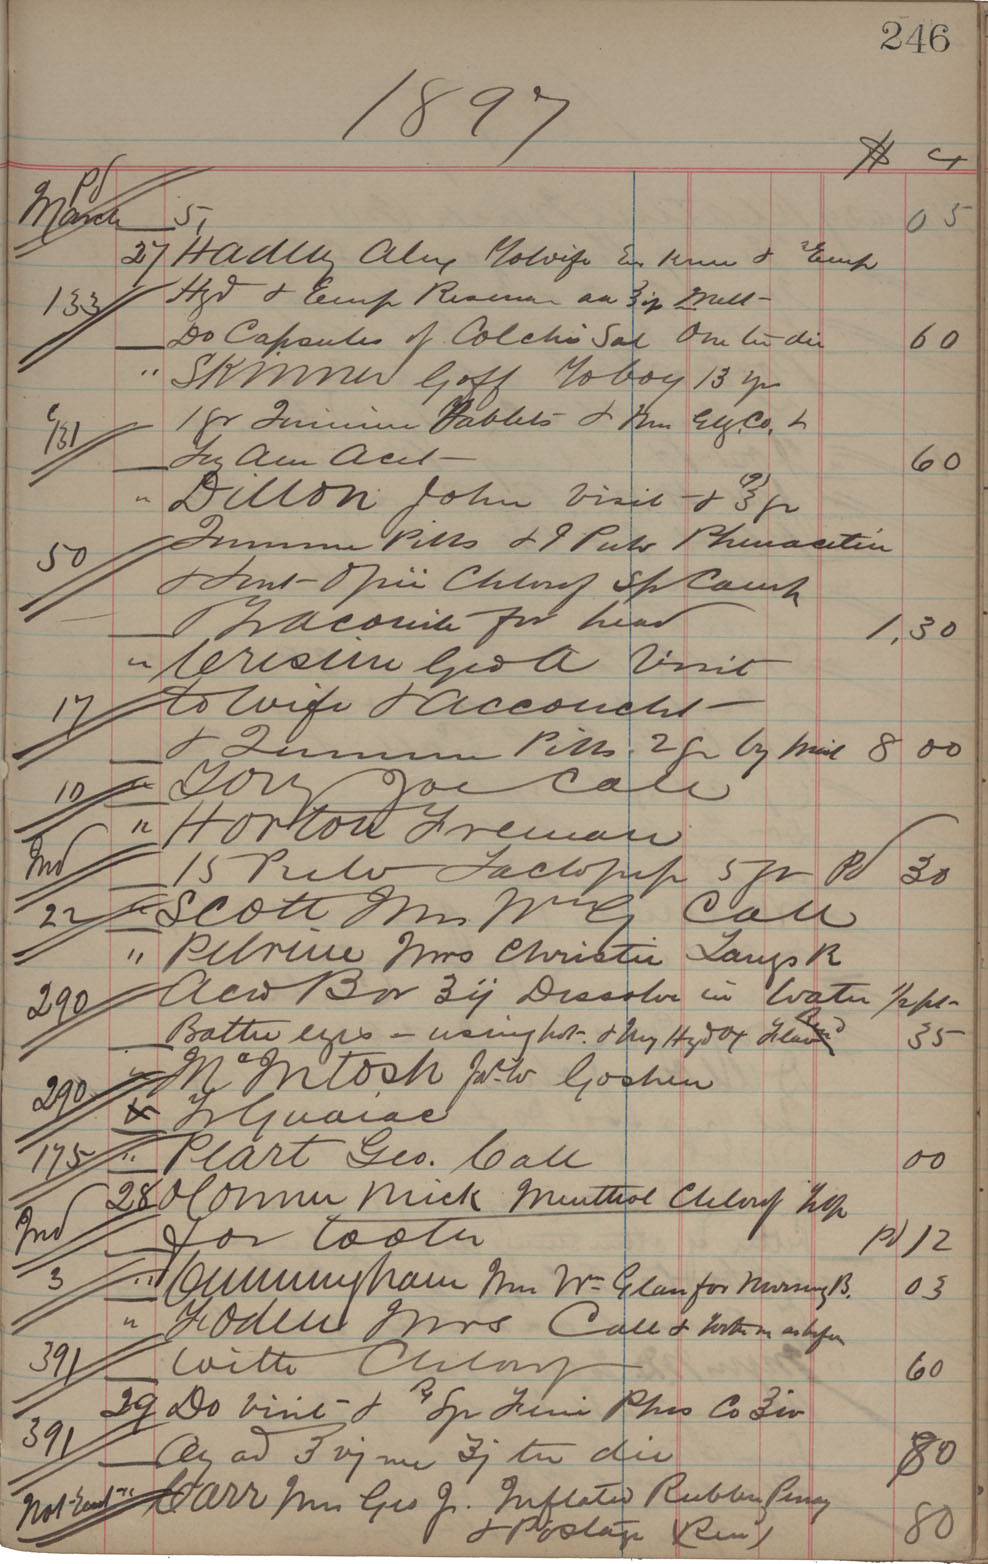 246
1897
$ ct
Pd
March 5, 05
27 Hadley Alex To wife &
133 Hyd & Emp aa Mell
Do Capsules of Colchi Sal One ter die 60
" Skinner Goff To boy 13 yrs
131 1 gr Tablets &
Acet 60
" Dillon John Visit & 3 gr
50 Pills & 9 Pulv Phenacetin
& Opii Chlorof Sp Camph
Tr Aconite for head 1,30
" Cristin Geo A Visit
17 to wife & Accoucht
& Pills 2 gr by mail 8 00
10 " Tory Joe Call
" Horton Freman
Ind 15 Pulv Lactopep 5 gr Pd 30
22 " Scott Mrs Wm G Call
" Pelrine Mrs Christie Larrys R
290 Acid Bor ʒij Dissolve in Water 1/2 pt
Bathe eyes - using hot & Ung Hyd Ox Flav 35
290 " McIntosh Jas W Goshen
Tr Guaiac
175 " Peart Geo. Call 00
28 OConner Mick Menthol Chlorof
Ind for tooth Pd 12
3 " Cunningham Mrs Wm Glass for Nursing B. 03
" Foden Mrs Call & as before
391 with Chlorof 60
29 Do Visit & Rx Syr Ferri Phos Co ʒiv
391 Aq ad ʒvj ʒj ter die 80
Not Ent " Carr Mrs Geo J. Inflated Rubber
& Postage 80